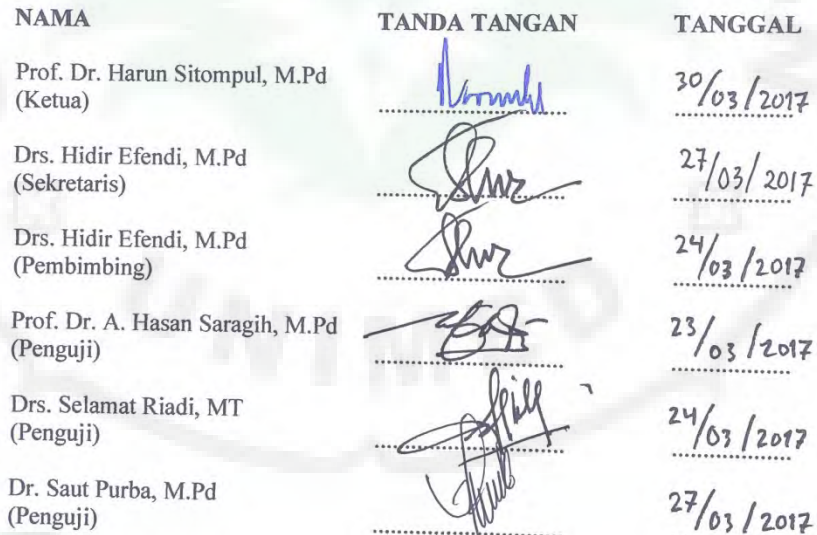 NAMA TANDA TANGAN TANGGAL
Prof. Dr. Harun Sitompul, M.Pd
(Ketua) 30/03/2017
Drs. Hidir Efendi, M.Pd
(Sekretaris) 27/03/2017
Drs. Hidir Efendi, M.Pd
(Pembimbing) 24/03/2017
Prof. Dr. A. Hasan Saragih, M.Pd
(Penguji) 23/03/2017
Drs. Selamat Riadi, MT
(Penguji) 24/03/2017
Dr. Saut Purba, M.Pd
(Penguji) 27/03/2017
UNIMED